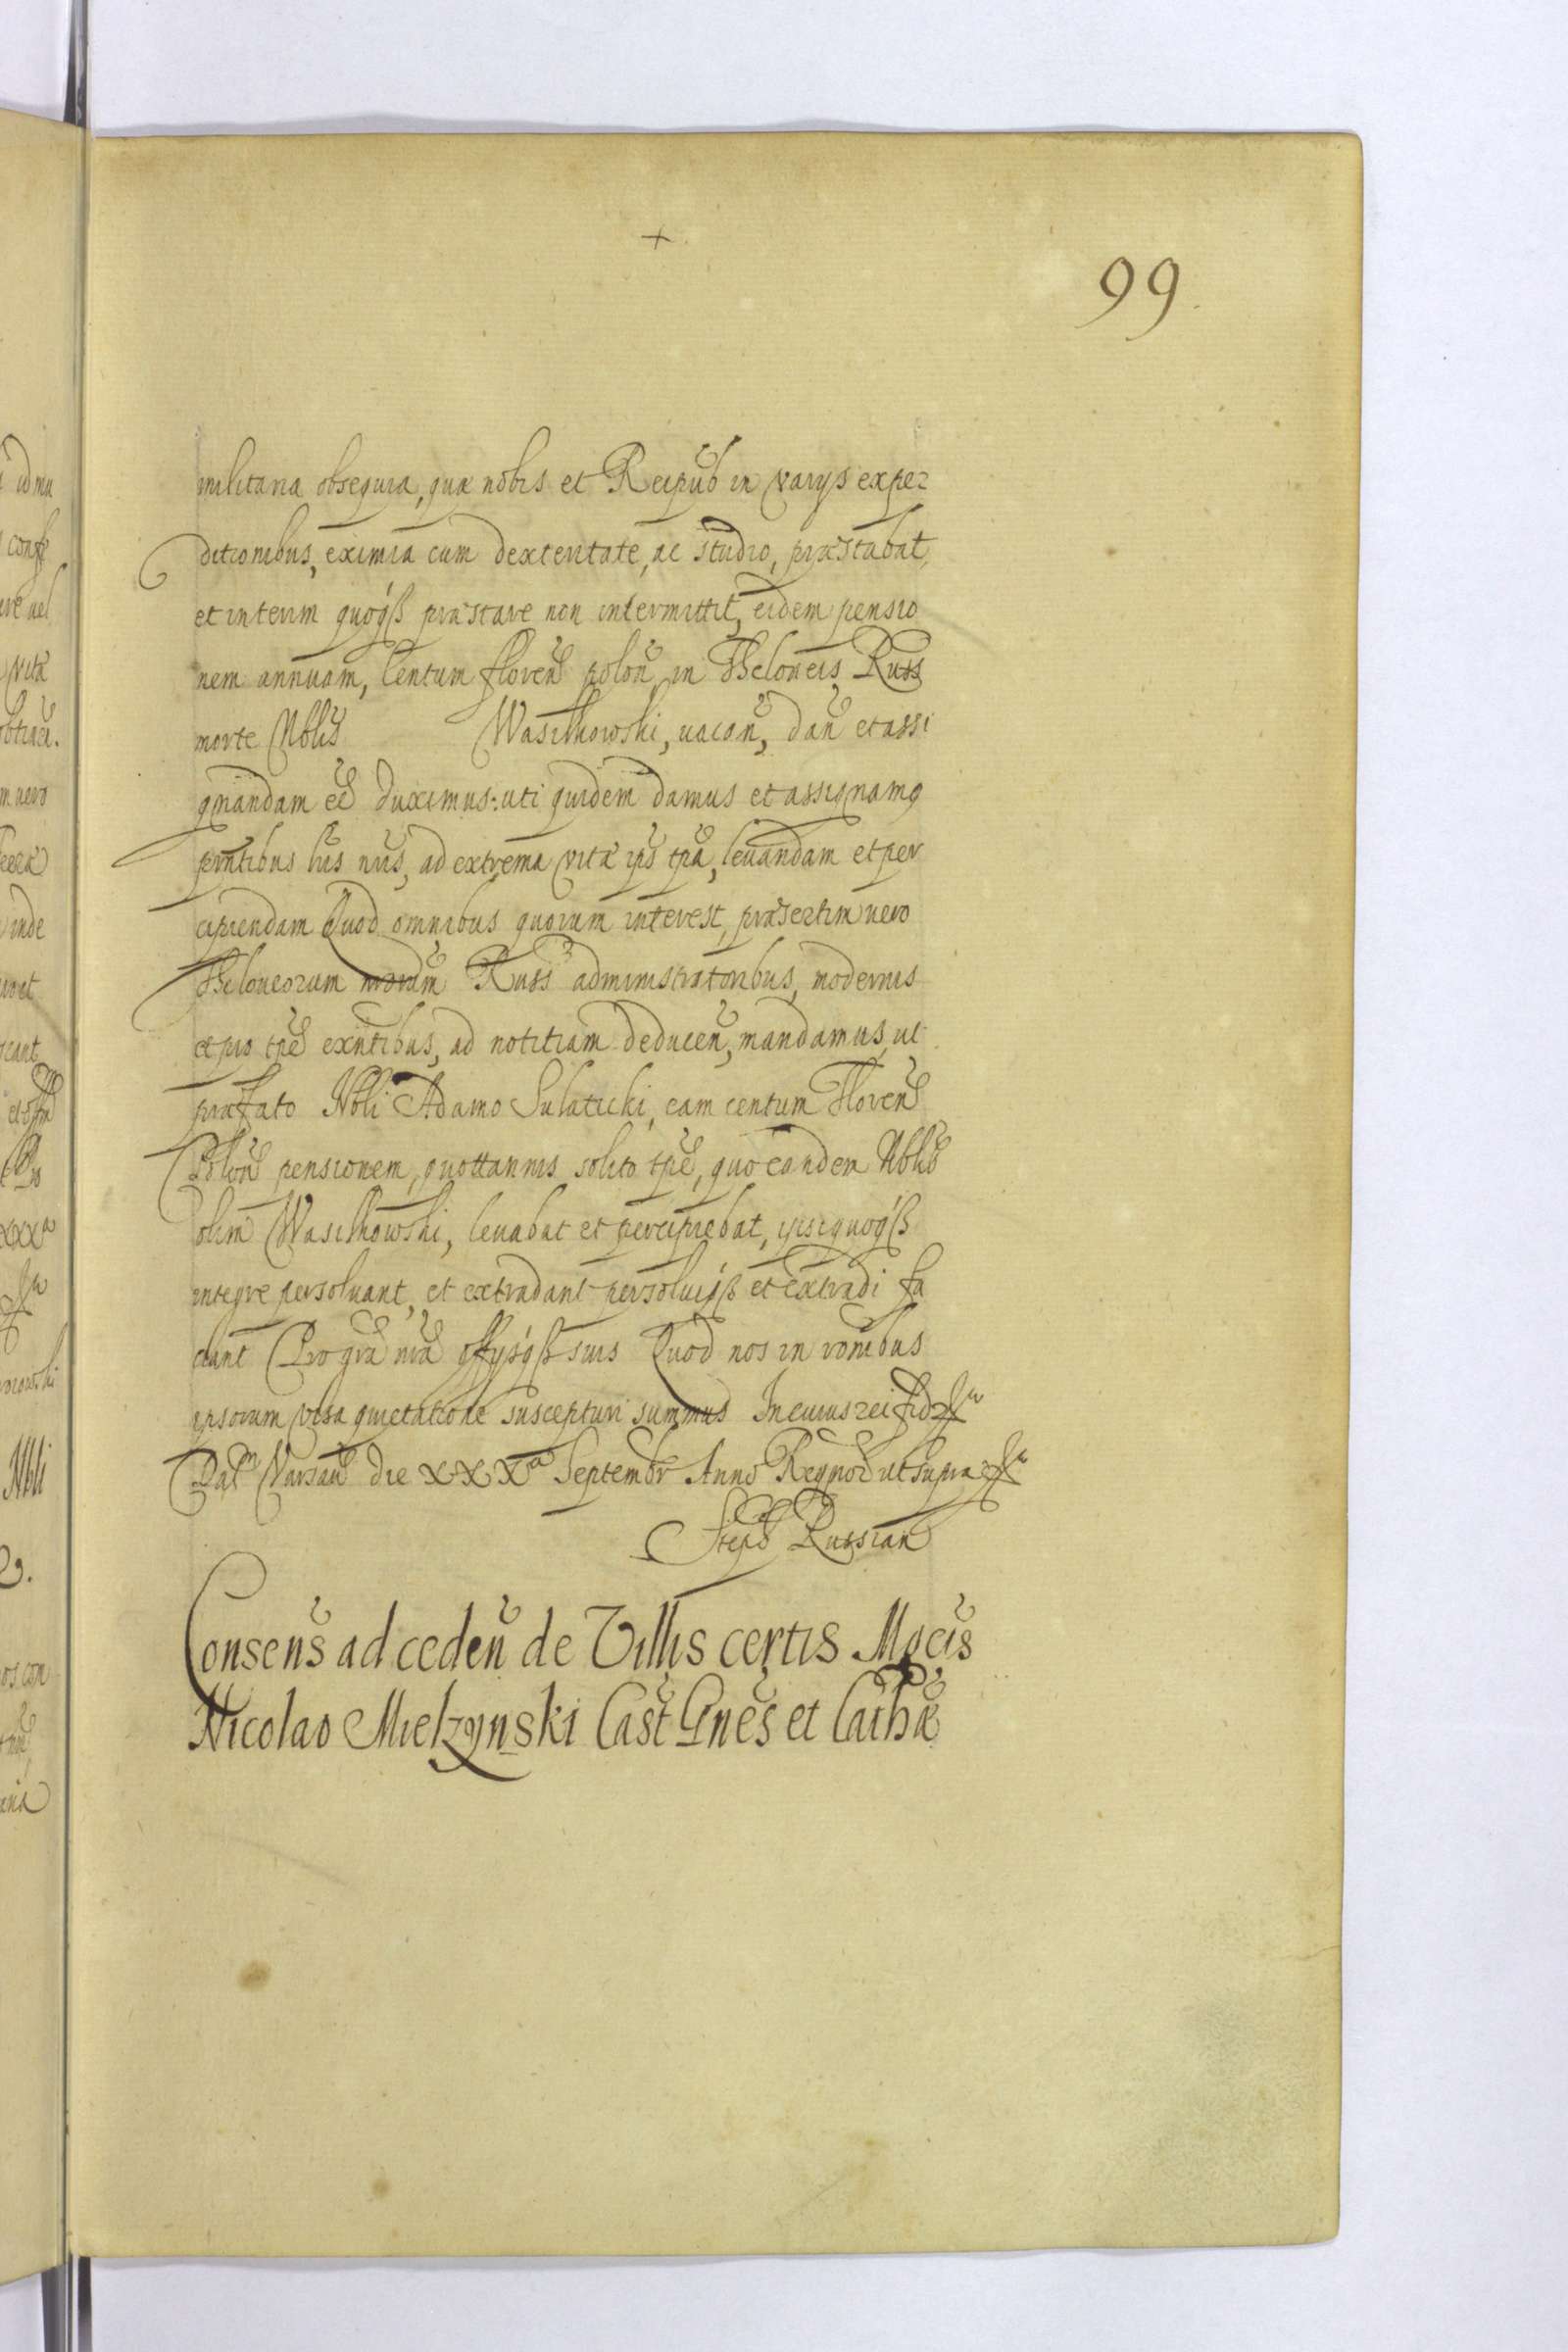 99
militaria obsequia, quæ nobis et Reipub in varijs expe=
ditionibus, eximia cum dexteritate, ac studio, præstabat,
et interim quoq̃ß præstare non intermittit, eidem pensio
nem annuam, Centum floren̄ polon̄ in Theloneis Russ
morte Nblis Wasilkowski, uacon̄, dan̄ et assi
gnandam eē duximus: uti quidem damus et assignamq
pn̄tibus lr̄is nr̄is, ad extrema vitæ ips̄ tpā, leuandam et per
cipiendam Quod omnibus quorum interest, præsertim uero
Theloneorum nr̄orum Russ administratoribus, modernis
et pro tpē exn̄tibus, ad notitiam deducen̄, mandamus, ut
præfato Nbli Adamo Sulaticki, eam centum Floren̄
Polon̄ pensionem, quottannis solito tpē, quo eandem Nblis
olim Wasilkowski, leuabat et percipiebat, ipsi quoq̃ß
integre persoluant, et extradant persoluiq̃ß et extradi fa
ciant Pro gr̄a nr̄a offysq̃ß suis Quod nos in ronibus
ipsorum visa quietatione suscepturi summus In cuius rei fid
Datm Varsau die XXXa Septembr Anno Regnor ut supra
Steph Russian
Consens̄ ad ceden̄ de Villis certis Mgcis
Nicolao Mielzynski Cast Gnes et Cathæ